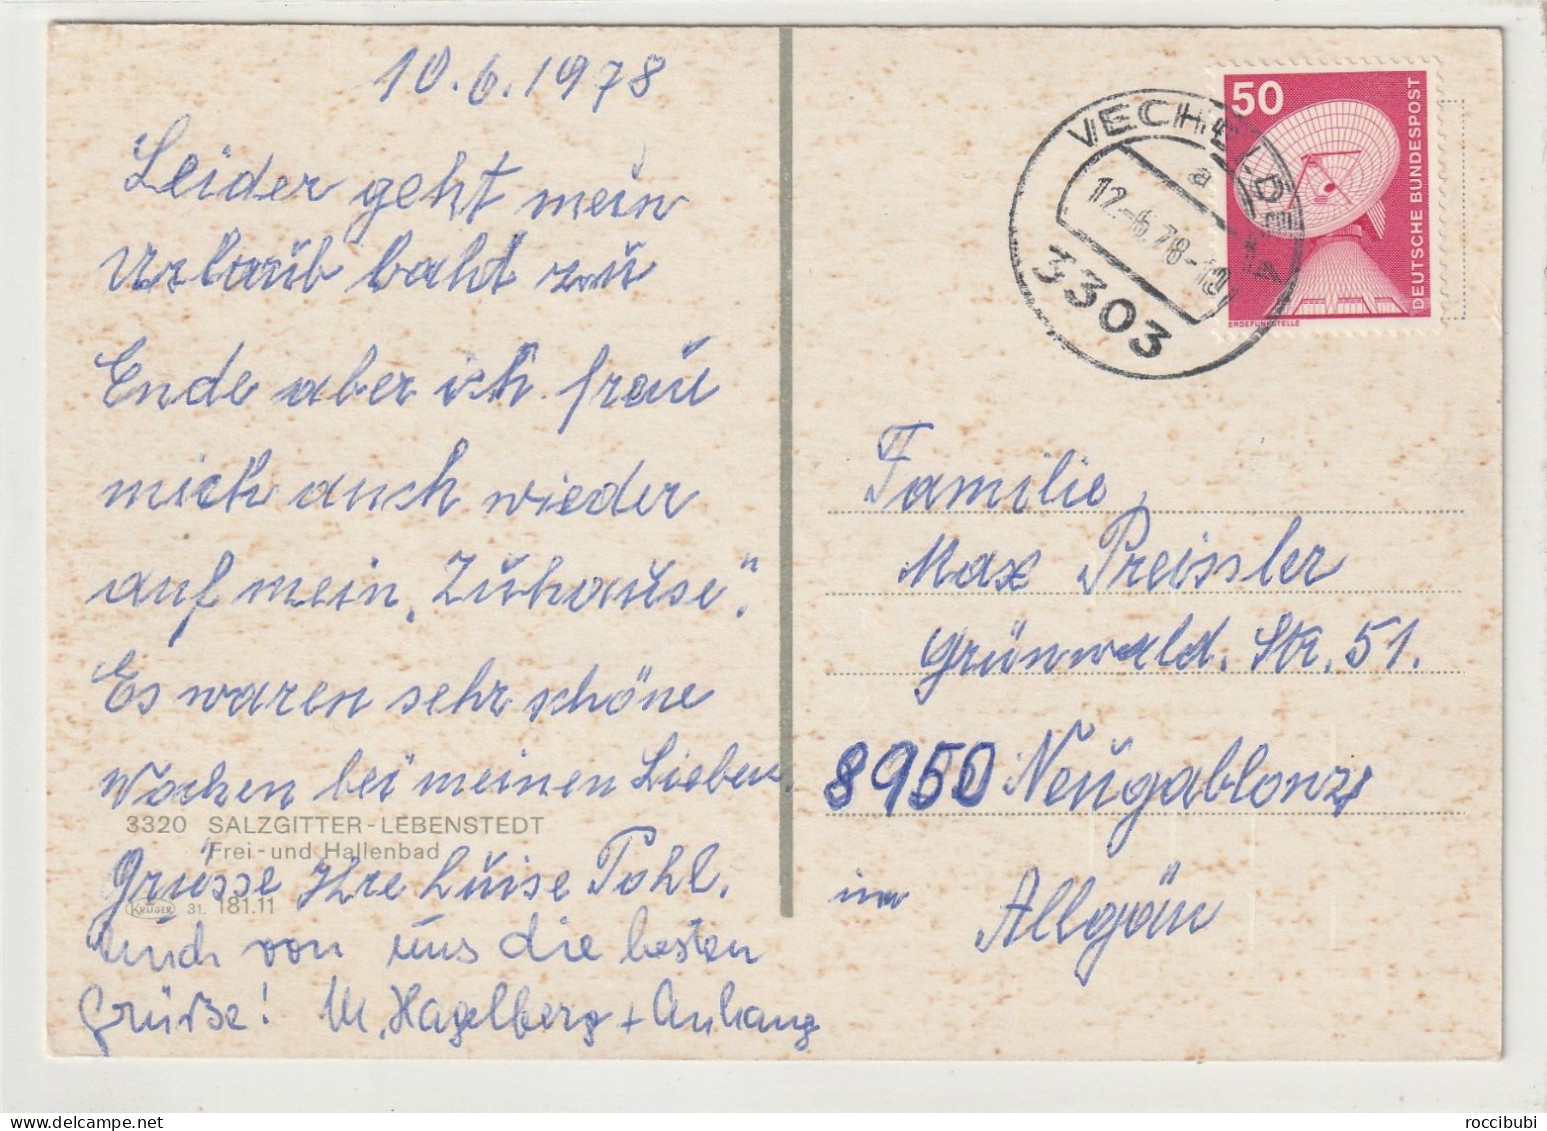 10.6.1978
Leider geht mein
Urlaub bald zu
Ende aber ich freu
mich auch wieder
auf mein „Zuhause“.
Es waren sehr schöne
Wochen bei meinen Lieben.
3320 SALZGITTER-LEBENSTEDT
Frei- und Hallenbad
Grüsse Ihre Luise Pohl.
KRÜGER 31. 181.11
Auch von uns die besten
Grüße! M. Hagelberg + Anhang
50
DEUTSCHE BUNDESPOST
ERDEFUNKSTELLE
VECHELDE
a
12.-6.78-10
3303
Familie
Max Preissler
Grünwald. Str. 51.
8950 Neugablonz
im Allgäu
roccibubi